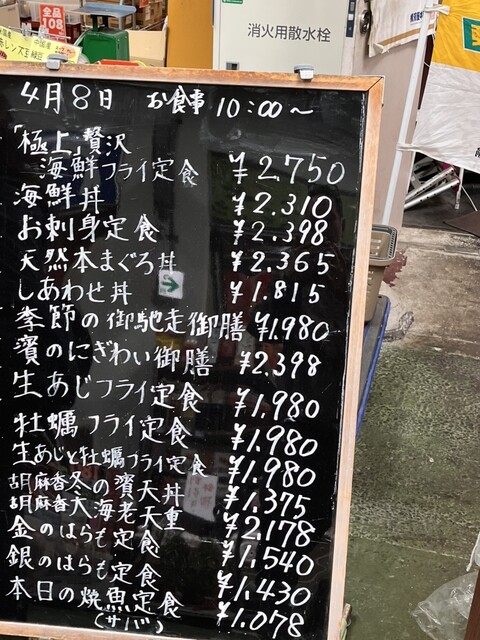 全品
108
消火用散水栓
4月8日 お食事 10:00～
「極上」贅沢
海鮮フライ定食 ¥2.750
海鮮丼 ¥2.310
お刺身定食 ¥2.398
天然本まぐろ丼 ¥2.365
しあわせ丼 ¥1.815
季節の御馳走御膳 ¥1.980
濱のにぎわい御膳 ¥2.398
生あじフライ定食 ¥1.980
牡蠣フライ定食 ¥1.980
生あじと牡蠣フライ定食 ¥1.980
胡麻香冬の濱天丼 ¥1.375
胡麻香大海老天重 ¥2.178
金のはらも定食 ¥1.540
銀のはらも定食 ¥1.430
本日の焼魚定食 ¥1.078
(サバ)